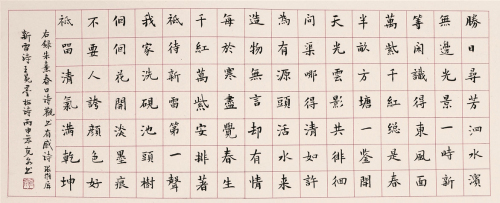 勝日尋芳泗水濱
無邊光景一時新
等閒識得東風面
萬紫千紅總是春
半畝方塘一鑒開
天光雲影共徘徊
問渠哪得清如許
為有源頭活水來
造物無言卻有情
每於寒盡覺春生
千紅萬紫安排著
祇待新雷第一聲
我家洗硯池頭樹
個個花開淡墨痕
不要人誇顏色好
祇留清氣滿乾坤
右錄朱熹春日詩觀書有感詩張維屏
新雷詩王冕墨梅詩丙申